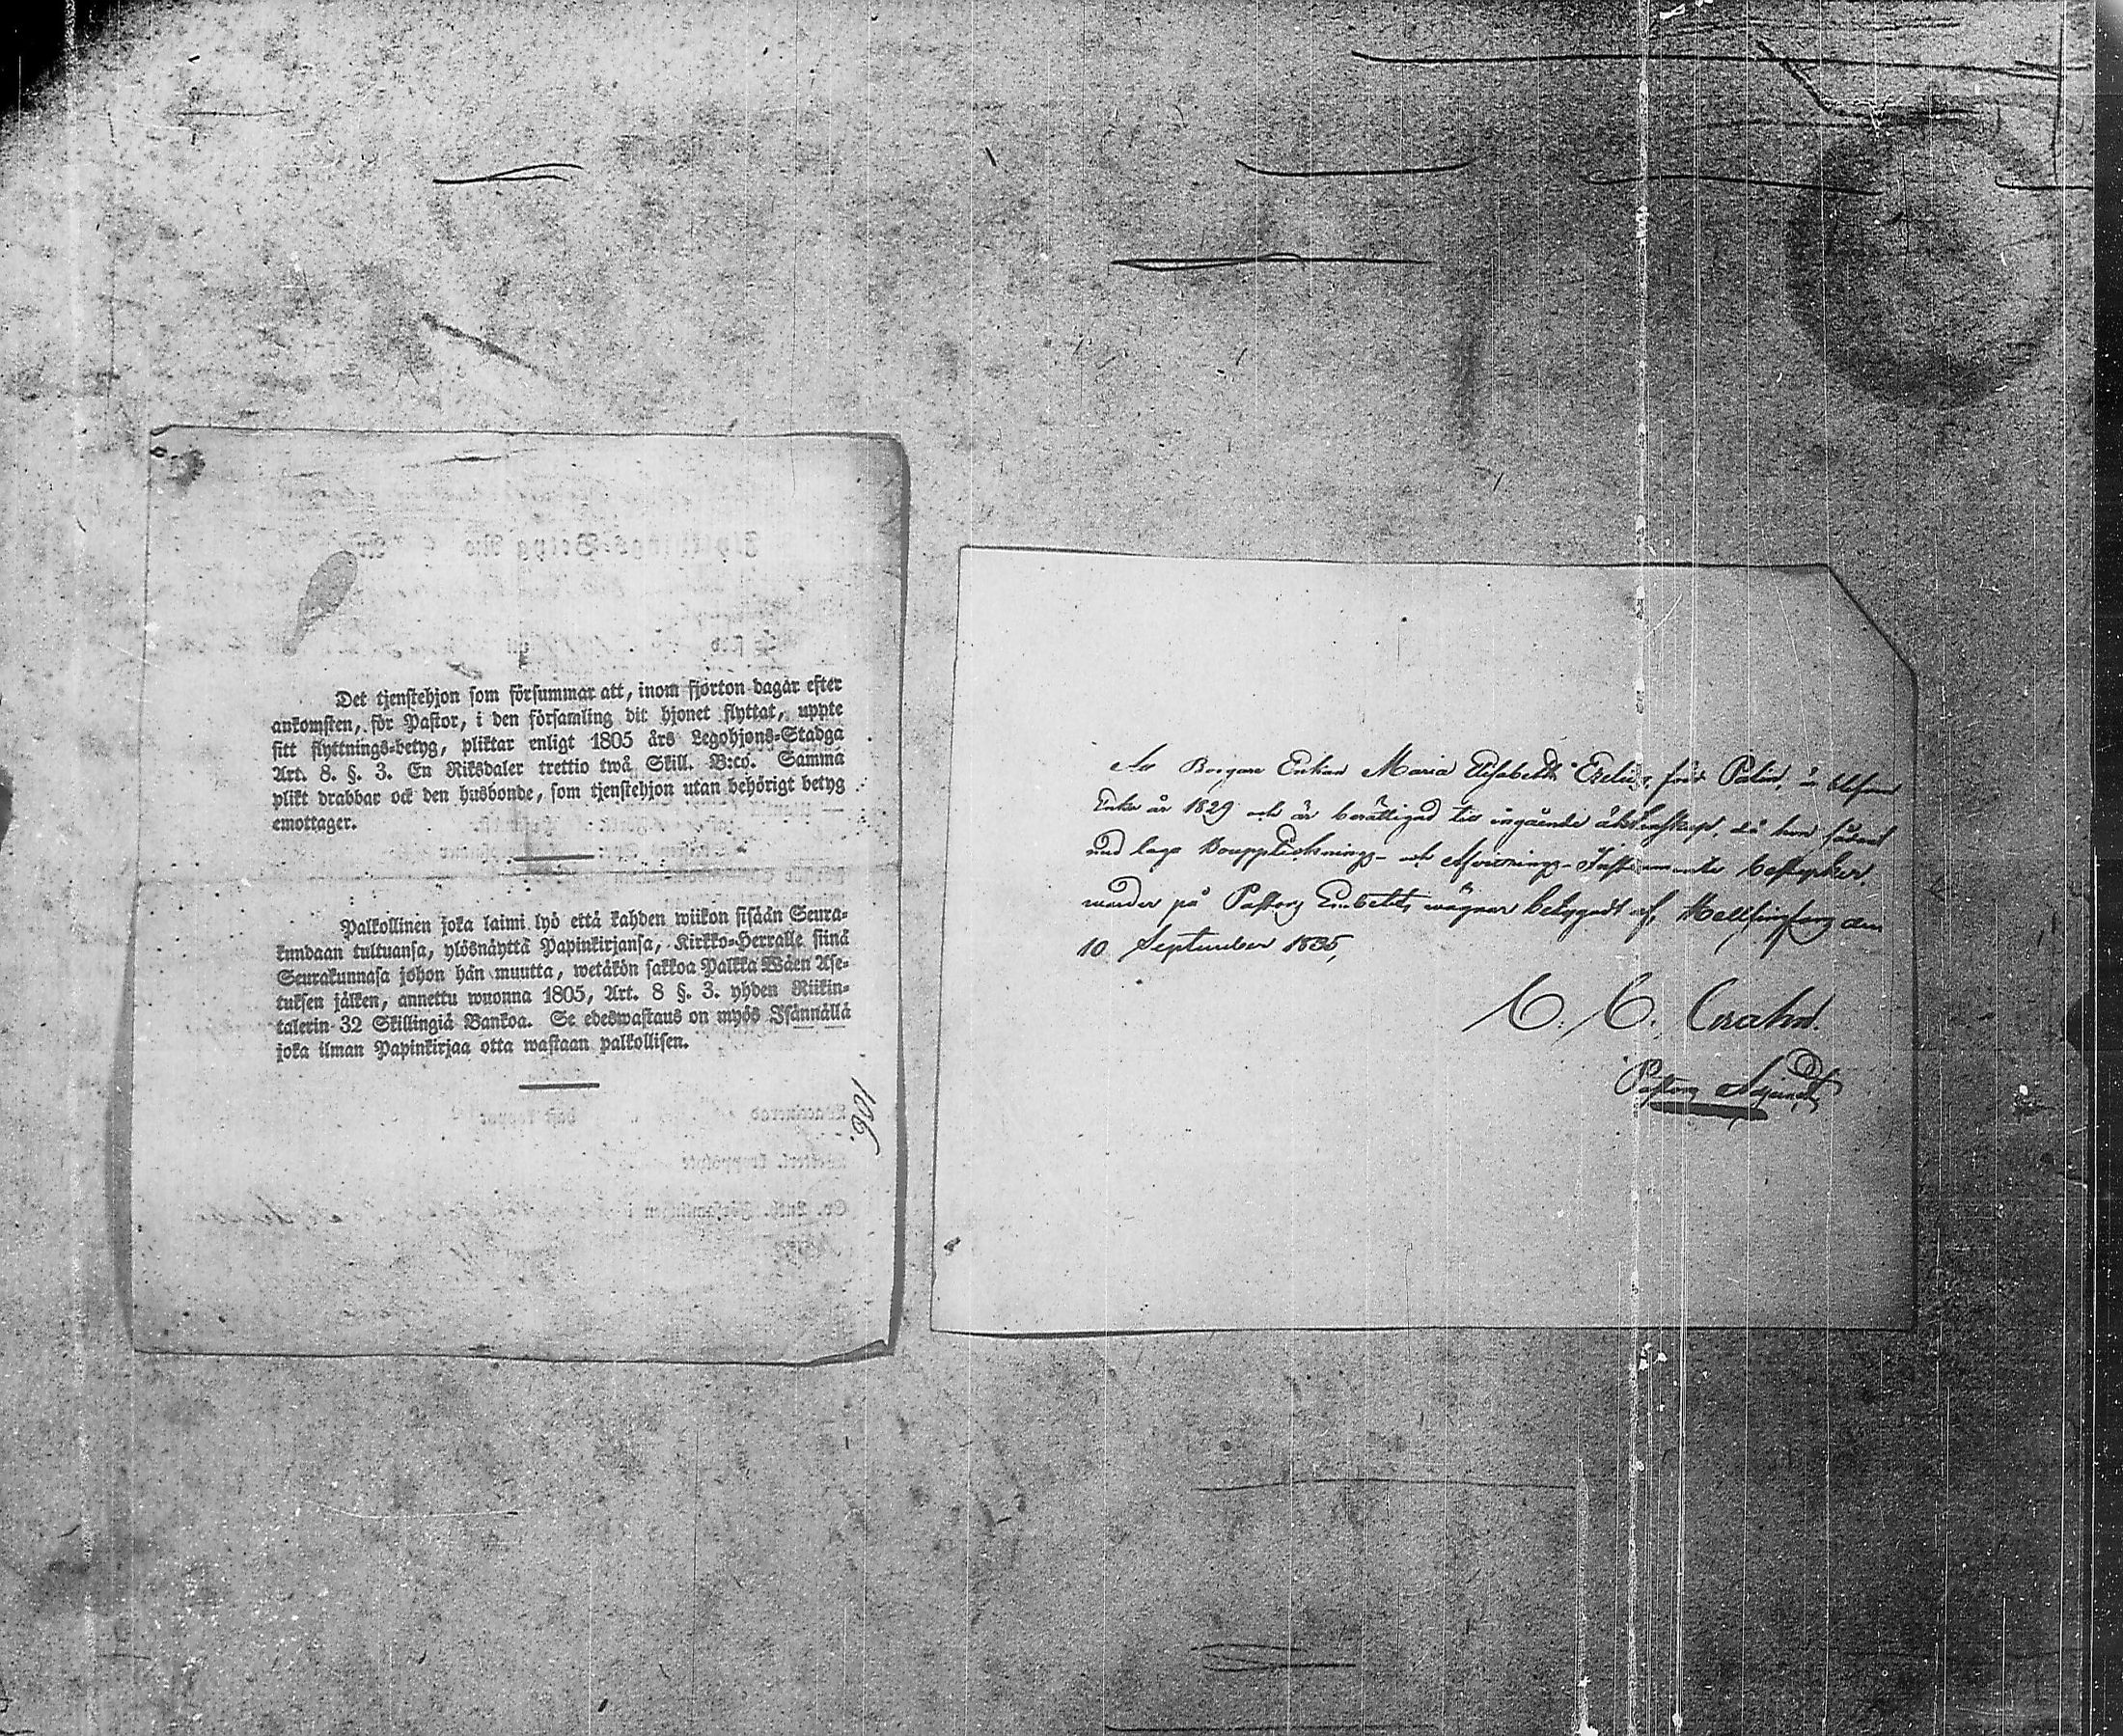 Det tjenstehjon som försummar att, inom fjorton dagar efter
ankomsten, för Pastor, i den församling dit hjonet flyttat, uppte
sitt flyttnings-betyg, pliktar enligt 1805 års Legohjons-Stadga
Art. 8. §. 3. En Riksdaler trettio twå Skill. B:co. Samma
plikt drabbar ock den husbonde, som tjenstehjon utan behörigt betyg
emottager.
Palkollinen joka laimi lyö että kahden wiikon sisään Seura-
kundaan tultuansa, ylösnäyttä Papinkirjansa, Kirkko-Herralle siinä
Seurakunnasa johon hän muutta, wetäkön sakkoa Palkka Wäen Ase-
tuksen jälken, annettu wuonna 1805, Art. 8 §. 3. yhden Riikin-
talerin 32 Skillingiä Bankoa. Se edeswastaus on myös Isännällä
joka ilman Papinkirjaa otta wastaan palkollisen.
106.
Att Borgare Enkan Maria Elisabeth född Palin, är
Enka år 1829 och är berättigad till ingående äktenskap, då hon
med laga Bouppteknings- och Afvittrings-Instrumenter bestyrker,
warder på Pastors Embetets wägnar betygadt af, Helsingfors den
10 September 1835,
C. C. Crahn.
Pastors Adjunct